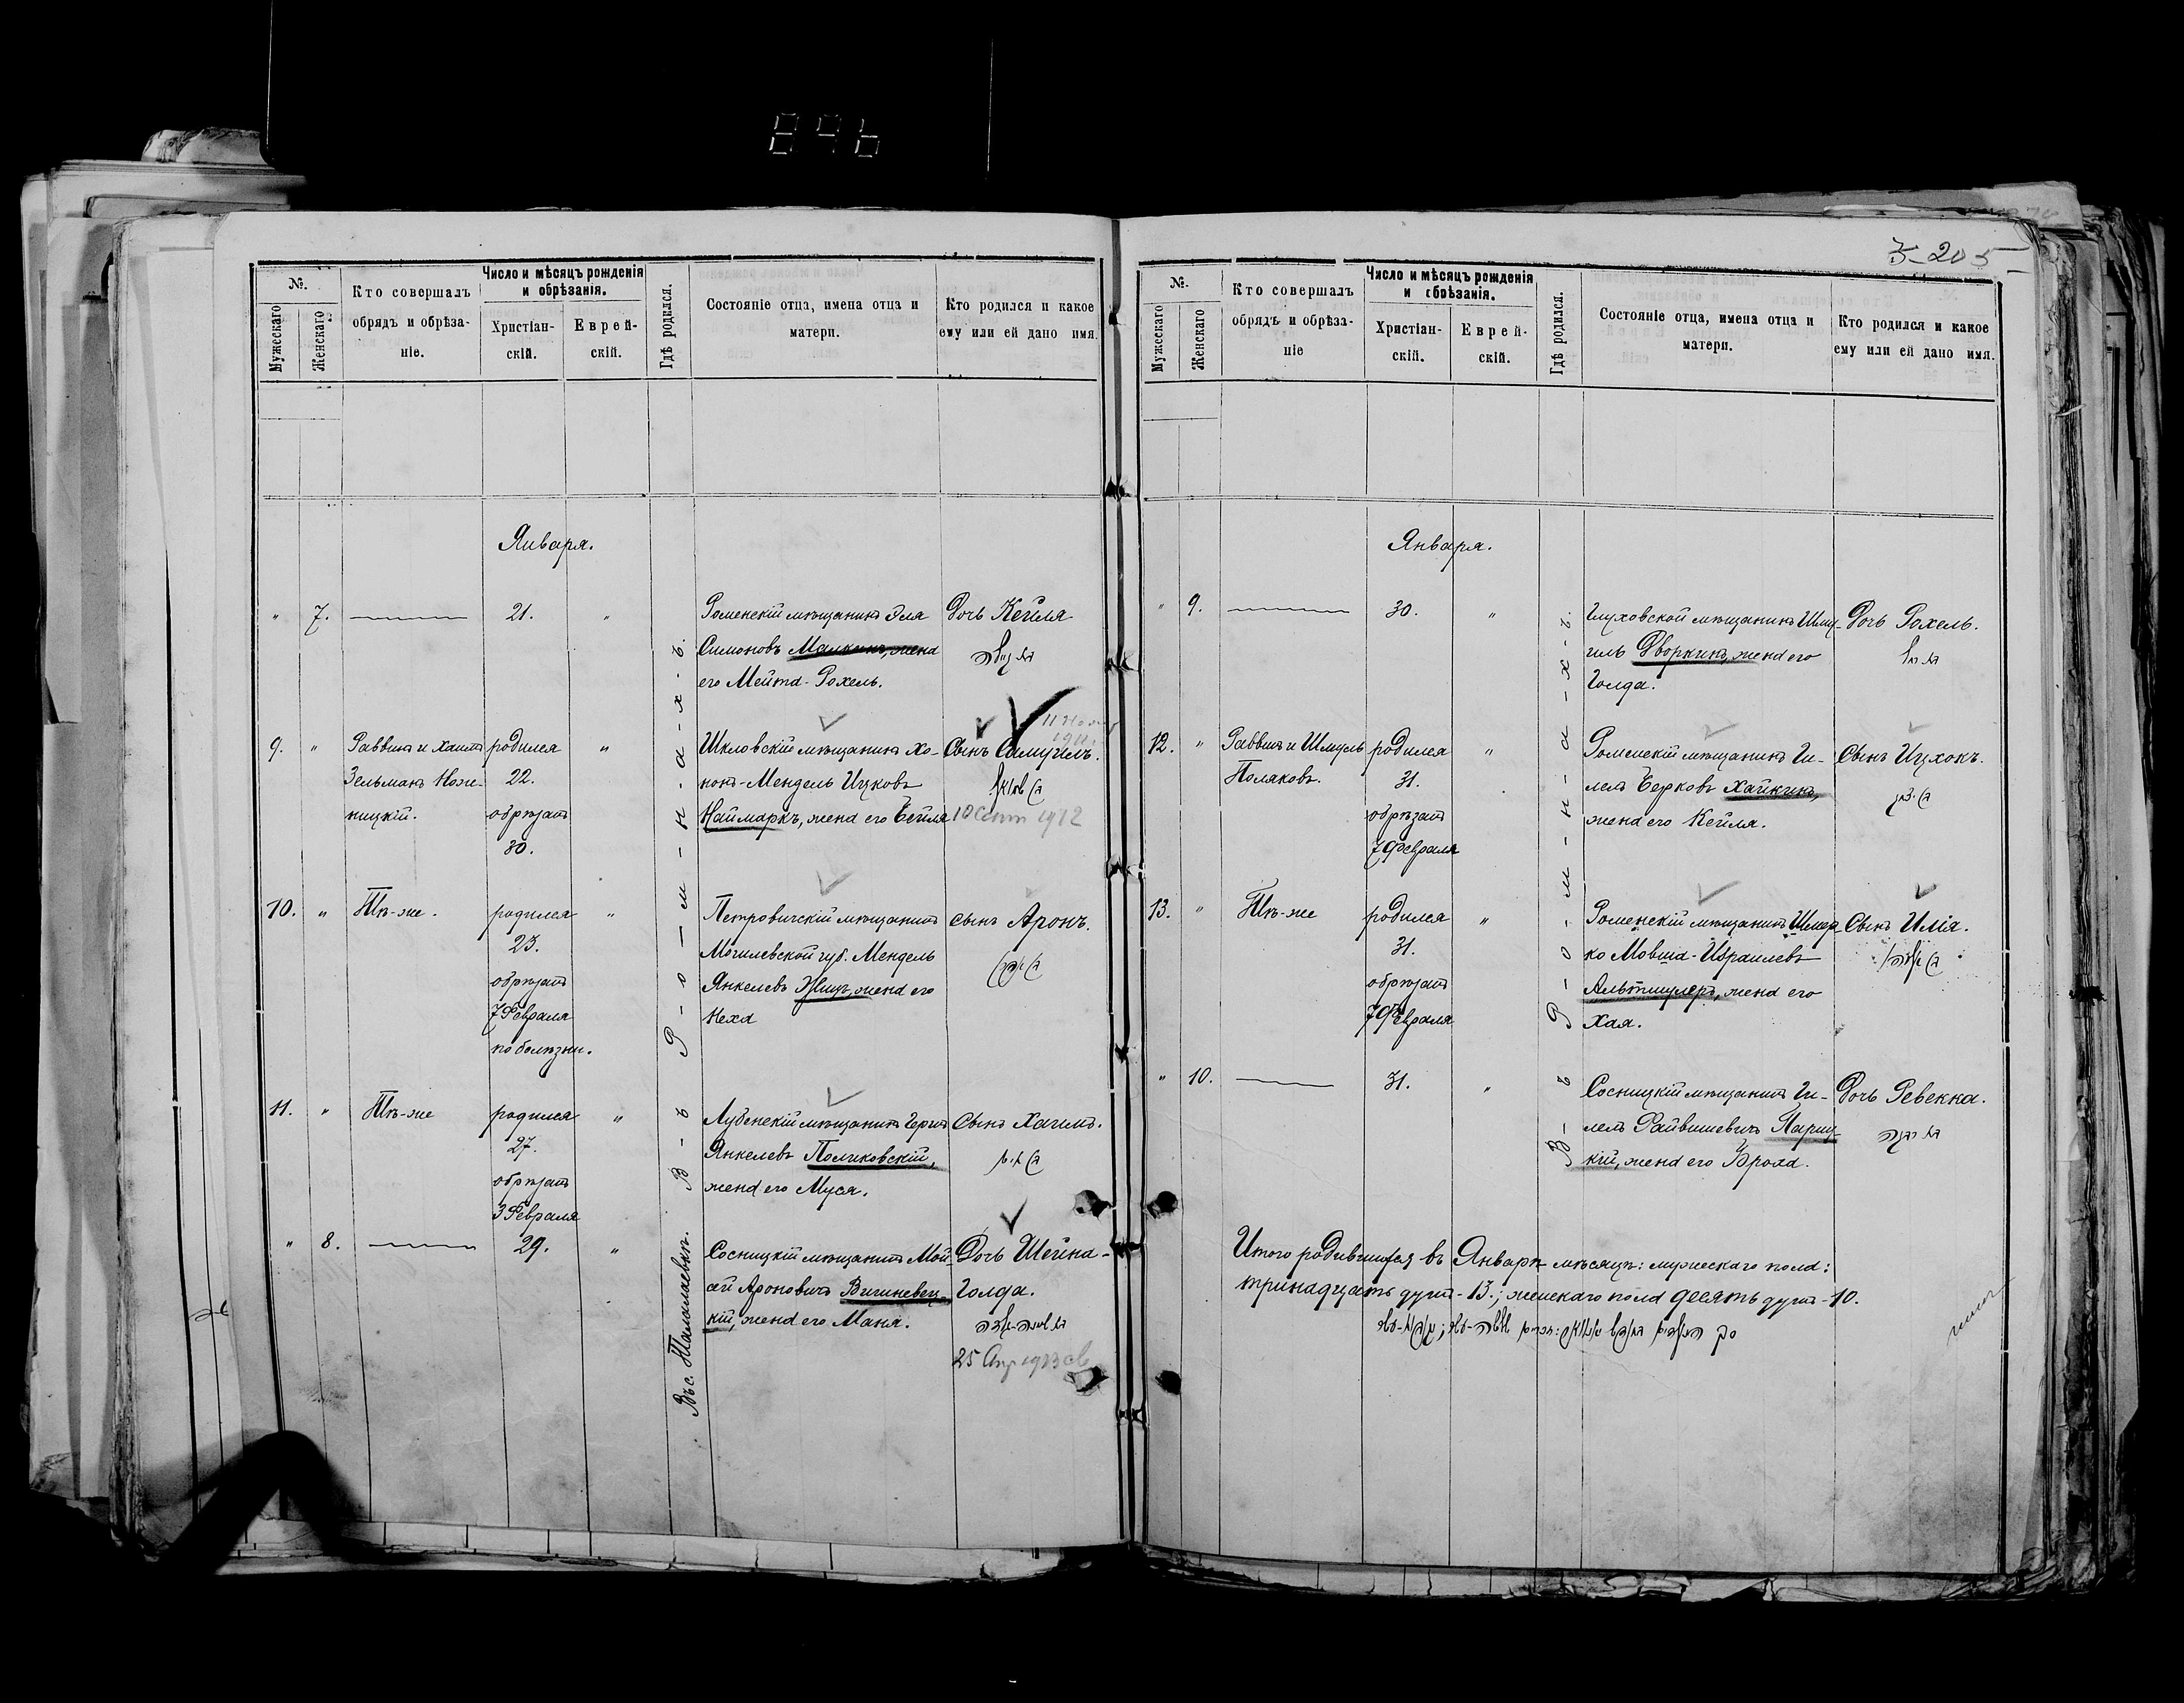 896
№.
Мужескаго
Женскаго
Кто совершалъ
обрядъ и обрѣза-
ніе.
Число и мѣсяцъ рожденія
и обрѣзанія.
Христіан-
скій.
Еврей-
скій.
Гдѣ родился.
Состояніе отца, имена отца и
матери.
Кто родился и какое
ему или ей дано имя.
Января.
В-ъ Р-о-м-н-а-х-ъ.
" 7. 21. "
Роменскій мѣщанинъ Эля
Симоновъ Малкинъ, жена
его Мейта-Рохель.
Дочь Кейля
9. "
Раввинъ и Хаимъ
Зельманъ Нож-
ницкій.
родился
22.
обрѣзанъ
30.
"
Шкловскій мѣщанинъ Хо-
нонъ-Мендель Ицковъ
Наймаркъ, жена его Бейля
11
1911.
Сынъ Самуилъ.
10 Сент 1912
10. "
Тѣ-же.
родился
23.
обрѣзанъ
7 Февраля
по болѣзни.
"
Петровичскій мѣщанинъ
Могилевской губ. Мендель
Янкелевъ, жена его
Неха
Сынъ Аронъ.
11. "
Тѣ-же
родился
27.
обрѣзанъ
3 Февраля
"
Лубенскій мѣщанинъ Герцъ
Янкелевъ Поляковскій,
жена его Муся.
Сынъ Хаимъ.
" 8. 29. "
Въ с. Талалаевкѣ.
Сосницкій мѣщанинъ Мой-
сей Ароновичъ Вишневец-
кій, жена его Маня.
Дочь Шейна-
Голда.
25 Апр 1913
5-205
№.
Мужескаго
Женскаго
Кто совершалъ
обрядъ и обрѣза-
ніе
Число и мѣсяцъ рожденія
и обрѣзанія.
Христіан-
скій.
Еврей-
скій.
Гдѣ родился.
Состояніе отца, имена отца и
матери.
Кто родился и какое
ему или ей дано имя.
Января.
В-ъ Р-о-м-н-а-х-ъ.
" 9. 30. "
Глуховской мѣщанинъ Шму-
иль Дворкинъ, жена его
Голда.
Дочь Рохель.
דא׳ רחל
12. "
Раввинъ и Шмуль
Поляковъ.
родился
31.
обрѣзанъ
7 Февраля
"
Роменскій мѣщанинъ Ги-
лель Берковъ Хайкинъ,
жена его Кейля.
Сынъ Ицхокъ.
13. "
Тѣ-же
родился
31.
обрѣзанъ
7 Февраля
"
Роменскій мѣщанинъ Шмер-
ко Мовша-Израилевъ
Альтшулеръ, жена его
Хая.
Сынъ Илія.
" 10. 31. "
Сосницкій мѣщанинъ Ги-
лель Файвишевичъ Париц-
кій, жена его Броха.
Дочь Ревекка.
Итого родившихся въ Январѣ мѣсяцѣ: мужескаго пола:
тринадцать душъ-13.; женскаго пола десять душъ-10.